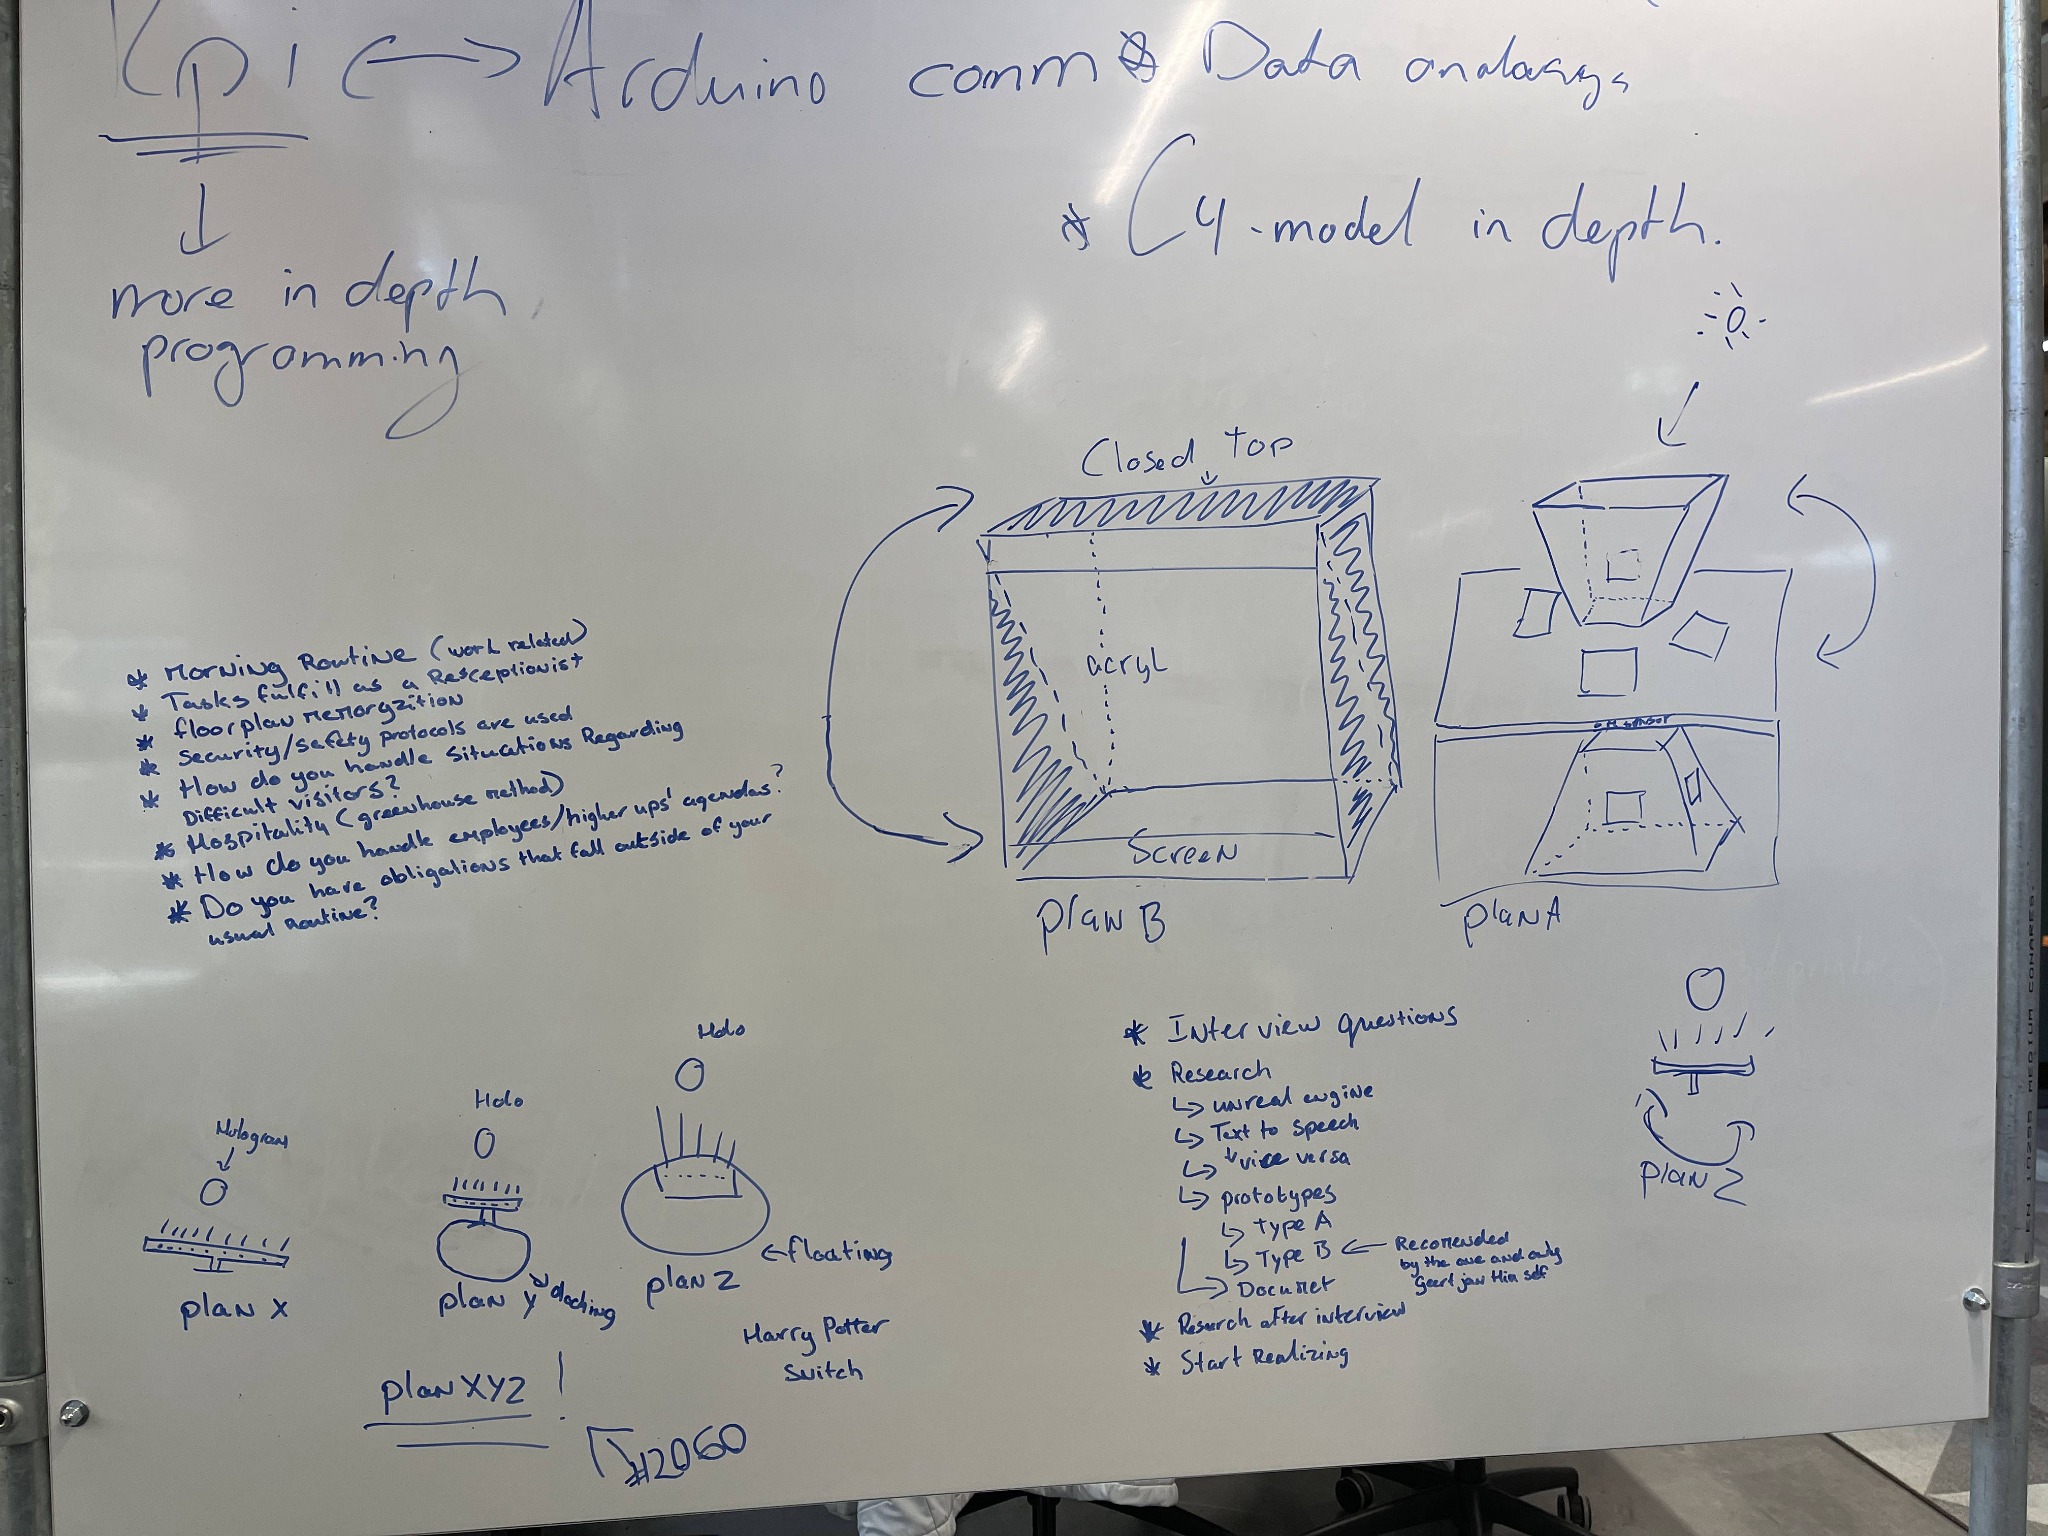 Rpi ↔ Arduino comm * Data analasys
* C4-model in depth.
↓
more in depth
programming
* Morning Routine (work related)
* Tasks fulfill as a Resceptionist
* floorplan memorgzition
* Security/safety protocols are used
* How do you handle situations Regarding
Difficult visitors?
* Hospitality (greenhouse method)
* How do you handle employees/higher ups' agendas?
* Do you have obligations that fall outside of your
usual Routine?
Closed Top
acryl
Screen
plan B
sensor
plan A
Hologram
plan X
Holo
plan Y
docking
Holo
plan Z
← floating
Harry Potter
Switch
plan XYZ !
2060
* Interview questions
* Research
↳ unreal engine
↳ Text to speech
↳ vice versa
↳ prototypes
↳ Type A
↳ Type B ← Recomended
by the one and only
Geert jan Him self
↳ Documet
* Research after interview
* Start Realizing
plan Z